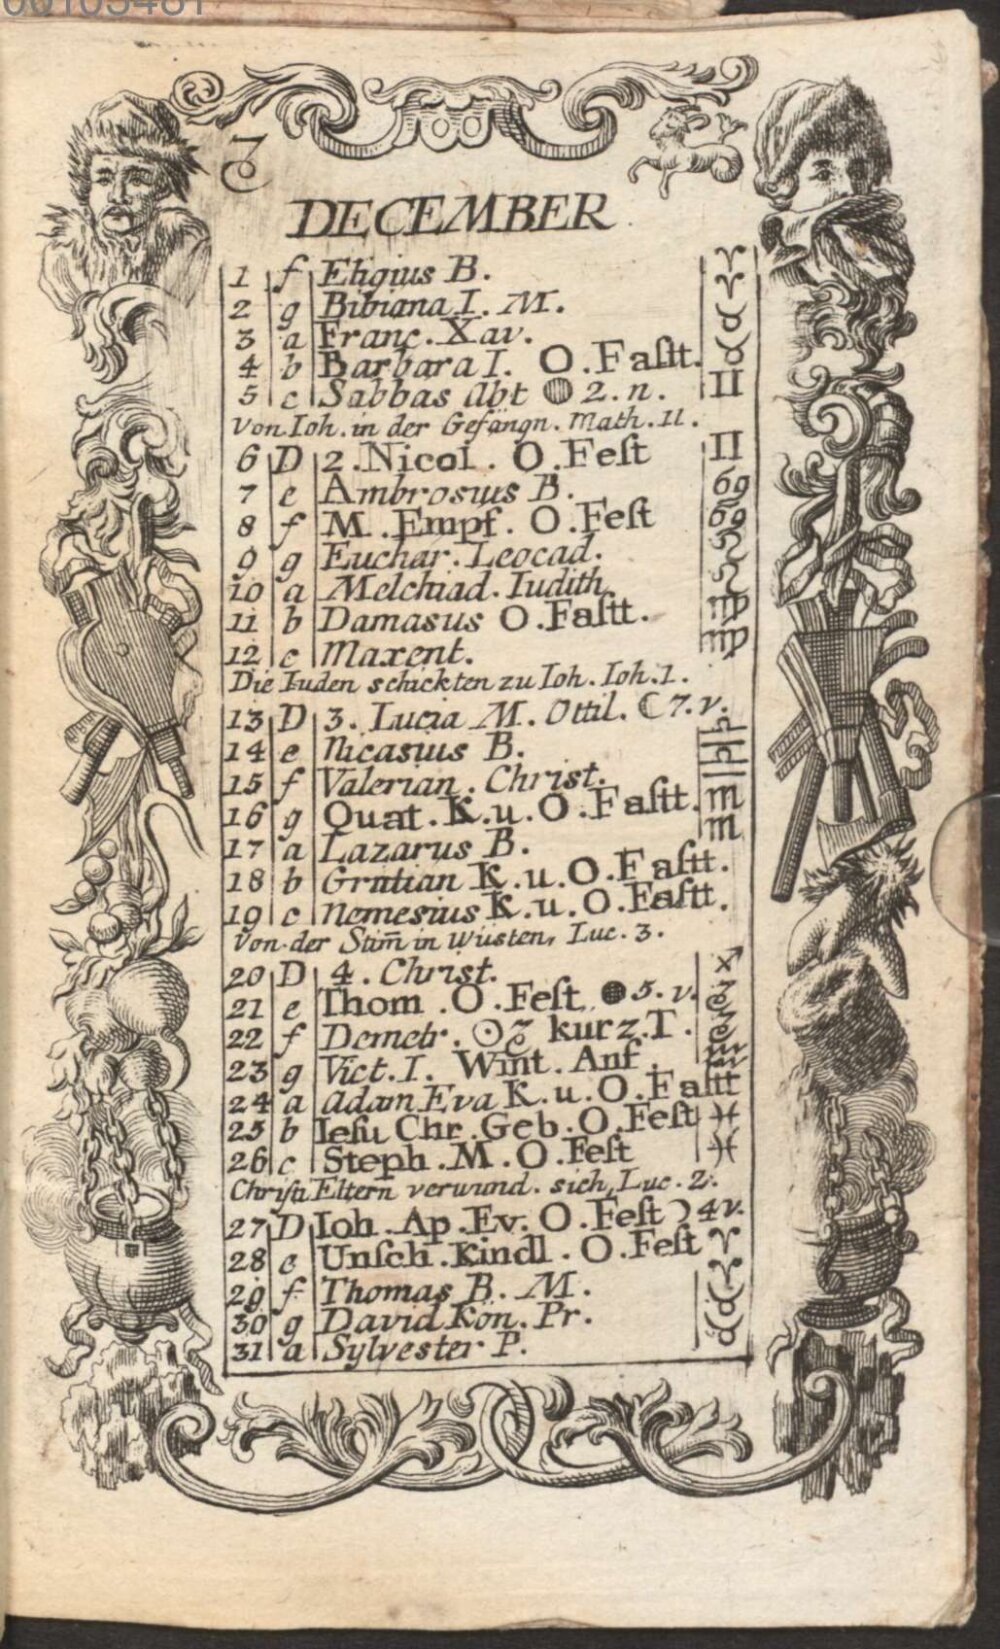 00103481
♑
DECEMBER
1 f Eligius B. ♈
2 g Bibiana I. M. ♈
3 a Franc. Xav. ♉
4 b Barbara I. O. Faſtt. ♉
5 c Sabbas Abt 2. n. II
Von Ioh. in der Gefängn. Math. 11.
6 D 2. Nicol. O. Feſt II
7 e Ambrosius B. ♋
8 f M. Empf. O. Feſt ♋
9 g Euchar. Leocad. ♌
10 a Melchiad. Iudith ♌
11 b Damasus O. Faſtt. ♍
12 c Maxent. ♍
Die Iuden schickten zu Ioh. Ioh. 1.
13 D 3. Lucia M. Ottil. ☾ 7. v.
14 e Nicasius B. ♎
15 f Valerian. Christ. ♎
16 g Quat. K. u. O. Faſtt. ♏
17 a Lazarus B. ♏
18 b Gratian K. u. O. Faſtt.
19 c Nemesius K. u. O. Faſtt.
Von der Stim̄ in Wüsten, Luc. 3.
20 D 4. Christ. ♐
21 e Thom. O. Feſt ● 5. v. ♑
22 f Demetr. ☉ ♑ kurz. T. ♑
23 g Vict. I. Wint. Anf. ♒
24 a Adam Eva K. u. O. Faſtt
25 b Ieſu Chr. Geb. O. Feſt ♓
26 c Steph. M. O. Feſt ♓
Christi Eltern verwund. sich, Luc. 2.
27 D Ioh. Ap. Ev. O. Feſt ☽ 4 v.
28 e Unſch. Kindl. O. Feſt ♈
29 f Thomas B. M. ♈
30 g David Kön. Pr. ♉
31 a Sylvester P. ♉